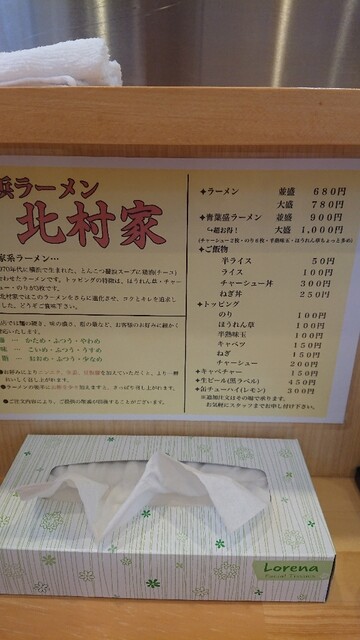 浜ラーメン
北村家
家系ラーメン…
970年代に横浜で生まれた、とんこつ醤油スープに鶏油(チーユ)
わせたラーメンです。トッピングの特徴は、ほうれん草・チャー
シュー・のりの3枚です。
北村家ではこのラーメンをさらに進化させ、コクとキレを追求し
した。どうぞご賞味下さい。
店では麺の硬さ、味の濃さ、脂の量など、お客様のお好みに細かく
いたします。
かため・ふつう・やわめ
味 ― こいめ・ふつう・うすめ
脂 ― おおめ・ふつう・少なめ
●お好みによりニンニク、生姜、豆板醤を加えていただくと、より一層
おいしく召し上がれます。
●ご注文内容により、ご提供の順番が前後することがございます。
✦ラーメン 並盛 680円
大盛 780円
✦青葉盛ラーメン 並盛 900円
↳超お得! 大盛 1,000円
(チャーシュー2枚・のり6枚・半熟味玉・ほうれん草ちょっと多め)
✦ご飯物
半ライス 50円
ライス 100円
チャーシュー丼 300円
ねぎ丼 250円
✦トッピング
のり 100円
ほうれん草 100円
半熟味玉 100円
キャベツ 150円
ねぎ 150円
チャーシュー 200円
✦キャベチャー 150円
✦生ビール(黒ラベル) 450円
✦缶チューハイ(レモン) 300円
※追加注文はその場で承ります。
お気軽にスタッフまでお申し付け下さい。
Lorena
Facial Tissues